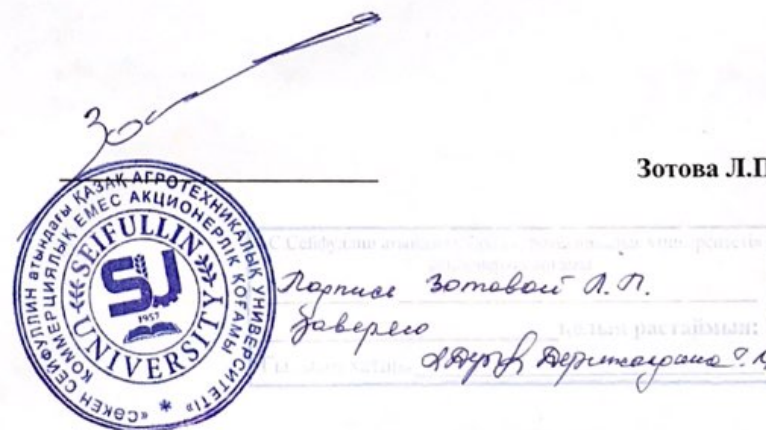 Зотова Л.П
«СӘКЕН СЕЙФУЛЛИН атындағы ҚАЗАҚ АГРОТЕХНИКАЛЫҚ УНИВЕРСИТЕТІ»
КОММЕРЦИЯЛЫҚ ЕМЕС АКЦИОНЕРЛІК ҚОҒАМЫ
SEIFULLIN
UNIVERSITY
1957
Подпись Зотовой Л.П.
Заверяю
қолын растаймын: